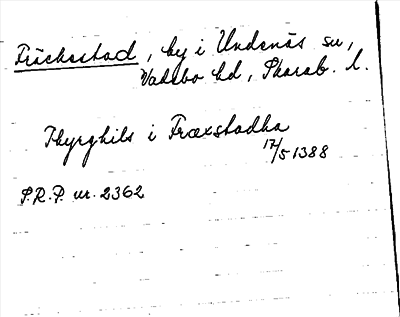 Fräckestad, by i Undenäs sn,
Vadsbo hd, Skarab. l.
Thyrghils i Fræxstadha
17/5 1388
S.R.P. nr. 2362